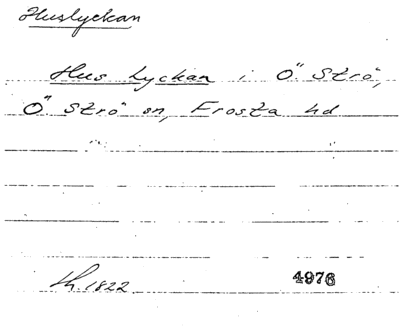 Huslyckan
Hus Lyckan i Ö. Strö,
Ö. Strö sn, Frosta hd
lh. 1822
4976